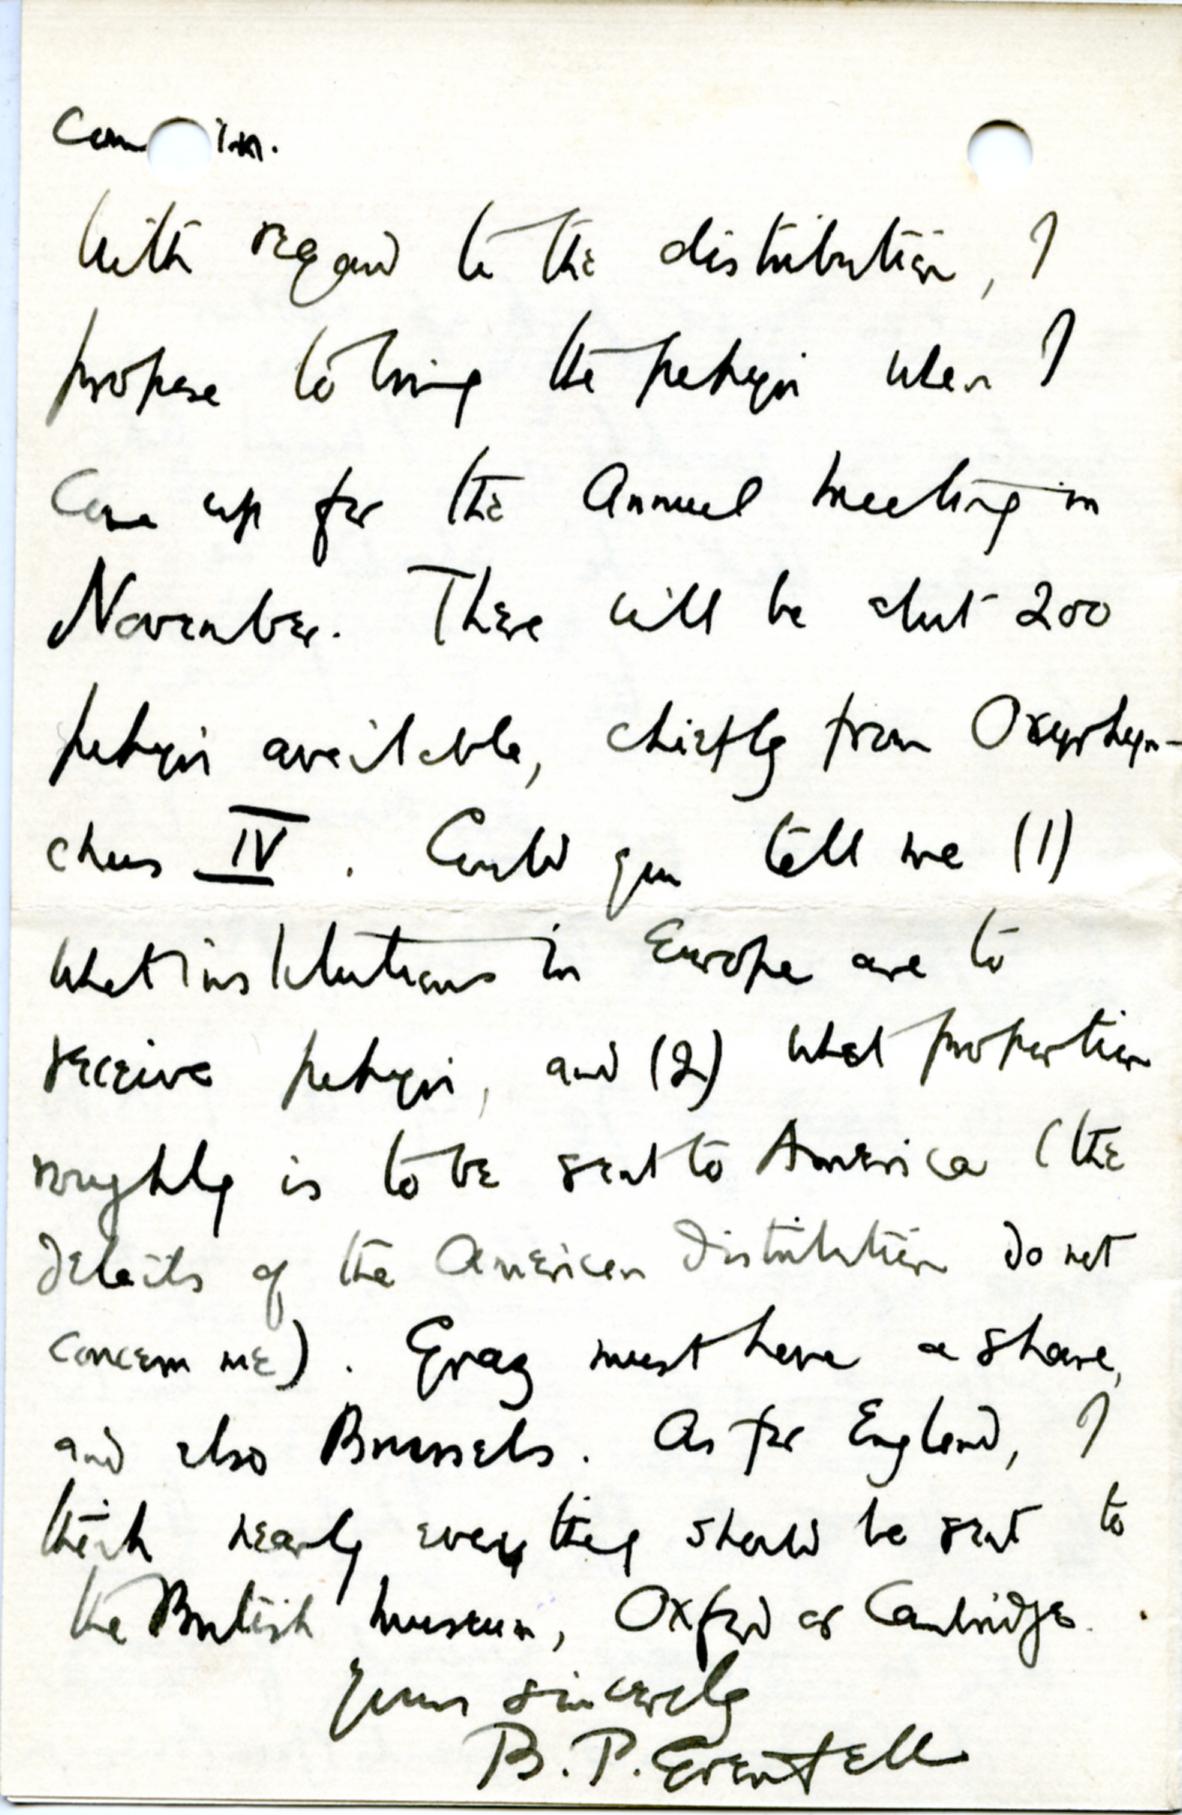 With regard to the distribution, I
propose to bring the papyri when I
come up for the Annual Meeting in
November. There will be about 200
papyri available, chiefly from Oxyrhyn-
chus IV. Could you tell me (1)
what institutions in Europe are to
receive papyri, and (2) what proportion
roughly is to be sent to America (the
details of the American distribution do not
concern me). Graz must have a share,
and also Brussels. As for England, I
think nearly everything should be sent to
the British Museum, Oxford or Cambridge.
Yours sincerely
B. P. Grenfell